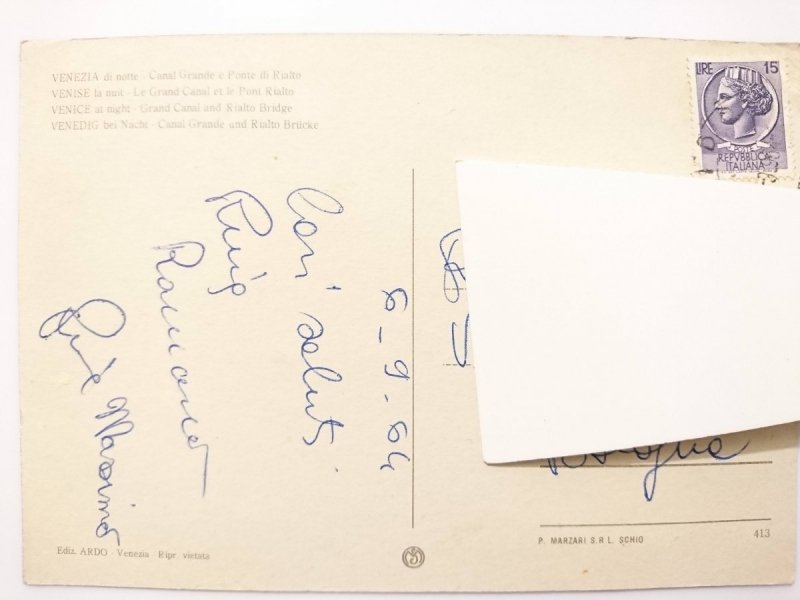 VENEZIA di notte - Canal Grande e Ponte di Rialto
VENISE la nuit - Le Grand Canal et le Pont Rialto
VENICE at night - Grand Canal and Rialto Bridge
VENEDIG bei Nacht - Canal Grande und Rialto Brücke
LIRE 15
POSTE
REPVBBLICA
ITALIANA
6-9-64
Cari saluti
Massimo
Ediz. ARDO - Venezia - Ripr. vietata
P. MARZARI S.R.L. SCHIO
413